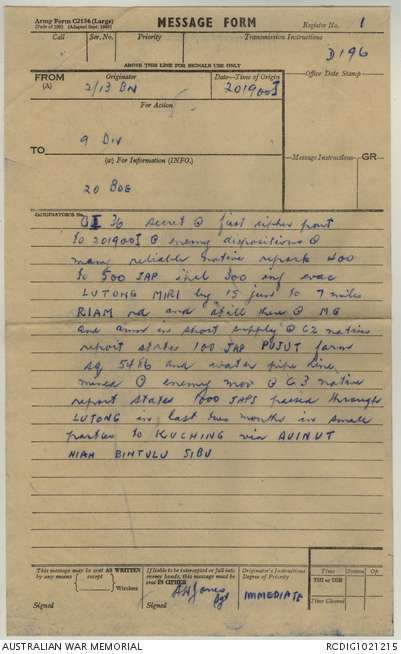 Army Form C2136 (Large)
MESSAGE FORM
Register No. 1
Call Ser. No. Priority Transmission Instructions
D196
ABOVE THIS LINE FOR SIGNALS USE ONLY
FROM Originator Date-Time of Origin Office Date Stamp
(A) 2/13 BN 201900I
For Action
9 DIV
TO
(W) For Information (INFO.) Message Instructions GR
20 BDE
ORIGINATOR'S No.
secret @ first sitrep
to 201900I @ enemy dispositions @
many reliable native reports 400
to 500 JAP incl 300 inf evac
LUTONG MIRI by 15 jun to 7 miles
RIAM rd and still there @ MG
and amn in short supply @ C2 natives
report states 100 JAP PUJUT farm
sq 5486 and water pipe line
mined @ enemy mov @ C3 native
report states 1000 JAPS passed through
LUTONG in last two months in small
parties to KUCHING via
NIAH BINTULU SIBU
This message may be sent AS WRITTEN
by any means except Wireless
If liable to be intercepted or fall into
enemy hands, this message must be
sent IN CIPHER
Originator's Instructions
Degree of Priority
Time System Op
THI or TOR
Time Cleared
Signed
Signed AW Jones
IMMEDIATE
AUSTRALIAN WAR MEMORIAL RCDIG1021215